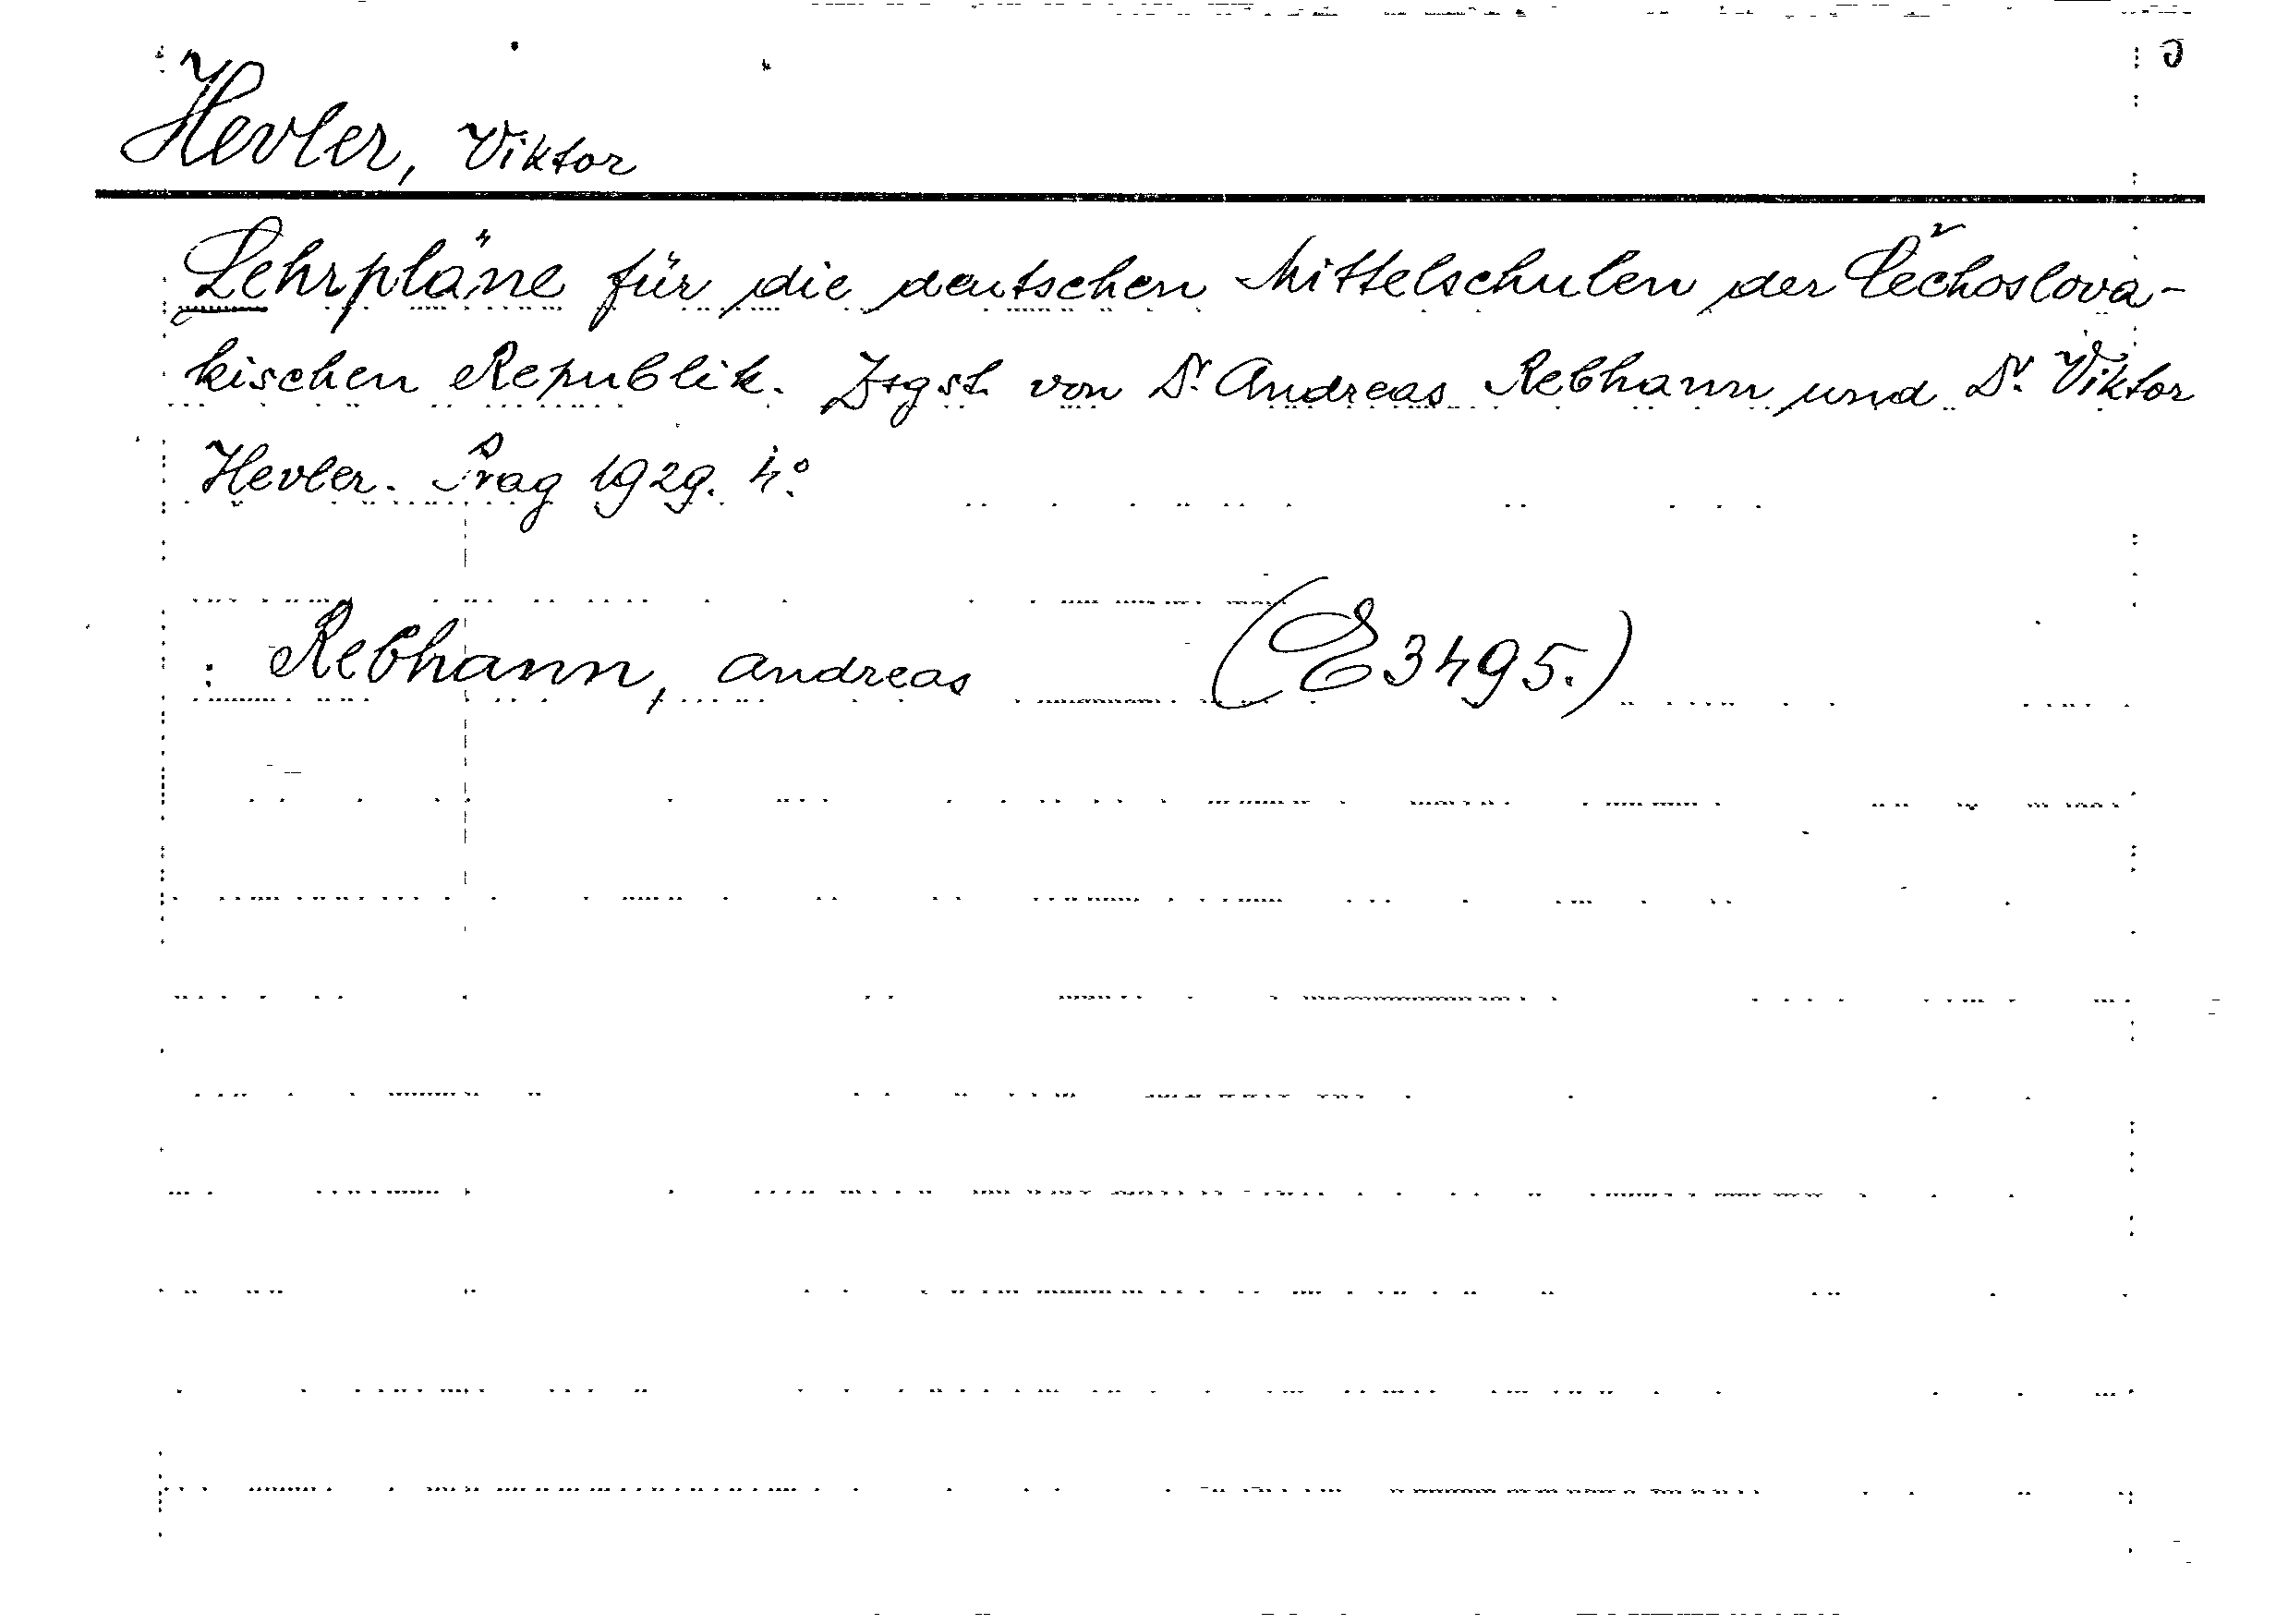 Hevler, Viktor
Lehrpläne für die deutschen Mittelschulen der Čechoslova-
kischen Republik. Zsgst. von Dr. Andreas Rebhann und Dr. Viktor
Hevler. Prag 1929. 4°.
: Rebhann, Andreas (E 3495.)